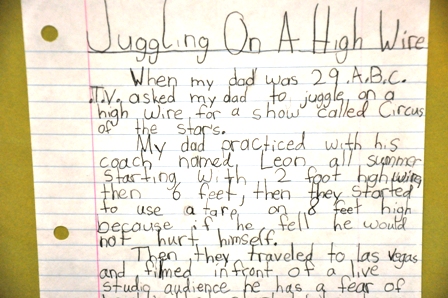 Juggling On A High Wire
When my dad was 29 A.B.C.
T.V. asked my dad to juggle on a
high wire for a show called Circus
of the stars.
My dad practiced with his
coach named Leon all summer
starting with 2 foot high wire,
then 6 feet, then they started
to use a tarp on 8 feet high
because if he fell he would
not hurt himself.
Then they traveled to las vegas
and filmed infront of a live
studio audience he has a fear of